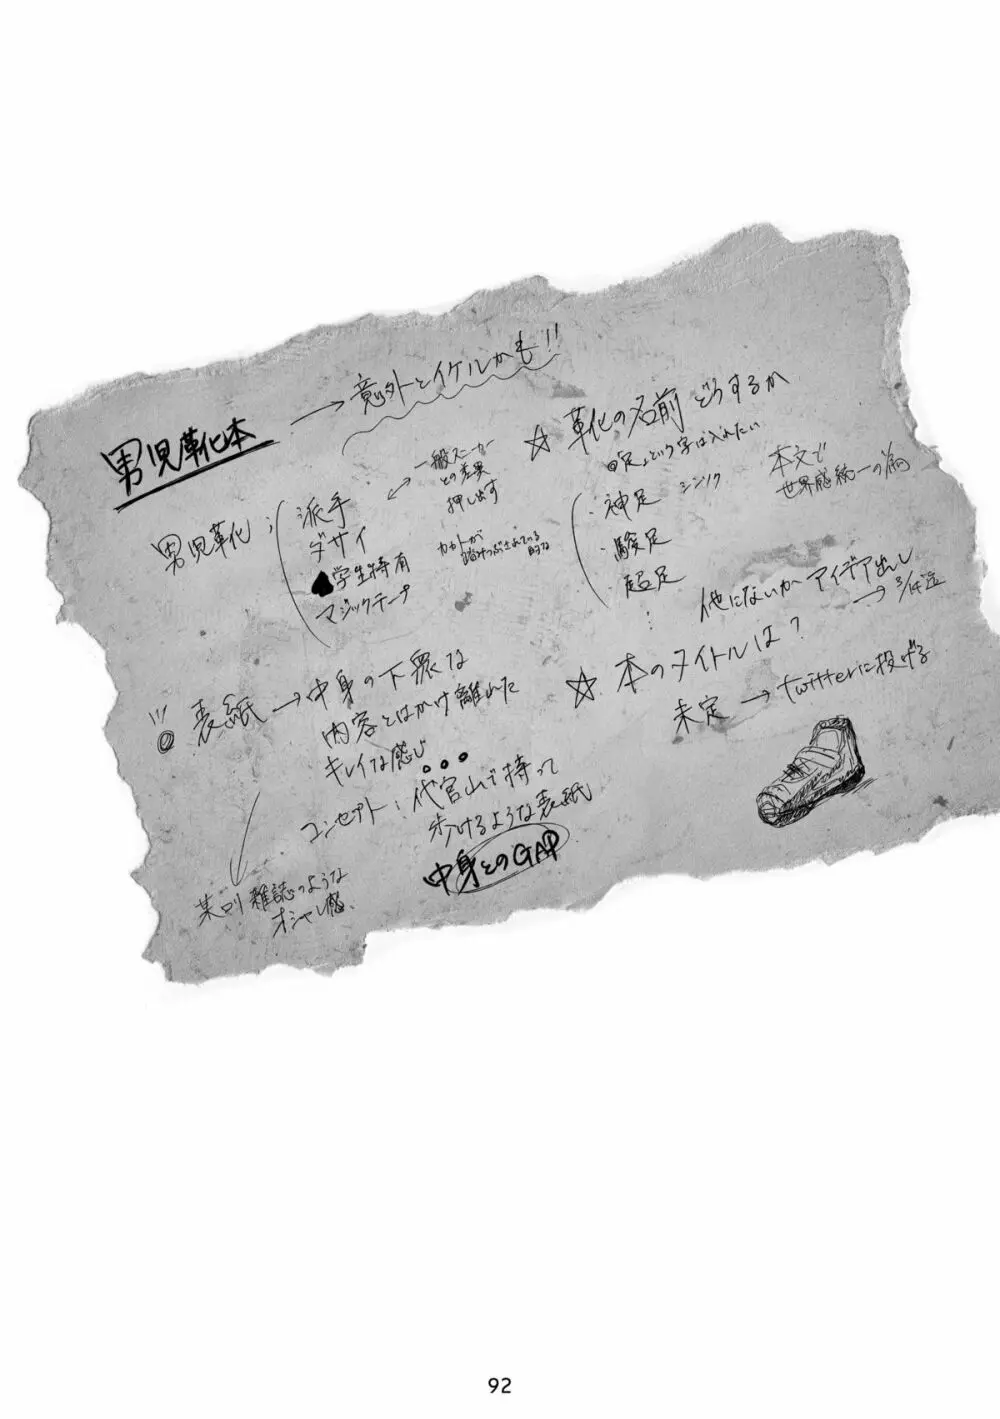 男児靴本 → 意外とイケルかも!!
男児靴;
派手
ダサイ
学生特有
マジックテープ
↔ 一般スニーカー
との差異
押し出す
カカトが
踏みつぶされている
的な
☆ 靴の名前どうするか
「足」という字は入れたい
・神足 シンソク
・駿足
・超足
⋮
本文で
世界感統一の為
他にないかアイデア出し
→ 3/14迄
!!! 表紙 → 中身の下衆な
内容とはかけ離れた
キレイな感じ
コンセプト:代官山で持って
歩けるような表紙
中身とのGAP
某ロリ雑誌のような
オシャレ感、
☆ 本のタイトルは?
未定 → twitterに投げる
92